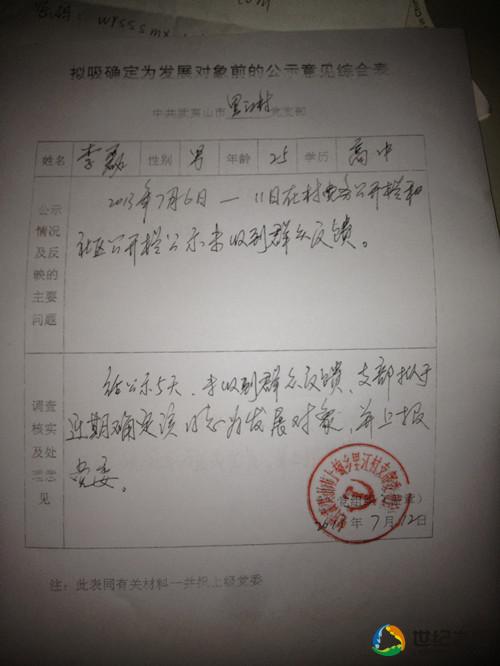 拟吸确定为发展对象前的公示意见综合表
中共武夷山市里江村党支部
姓名 李磊 性别 男 年龄 25 学历 高中
公示情况及反映的主要问题
2013年7月6日—11日在村党务公开栏和
社区公开栏公示未收到群众反馈。
调查核实及处理意见
经公示5天,未收到群众反馈,支部拟于
近期确定该同志为发展对象,并上报
党委。
年7月12日
注:此表同有关材料一共报上级党委
世纪